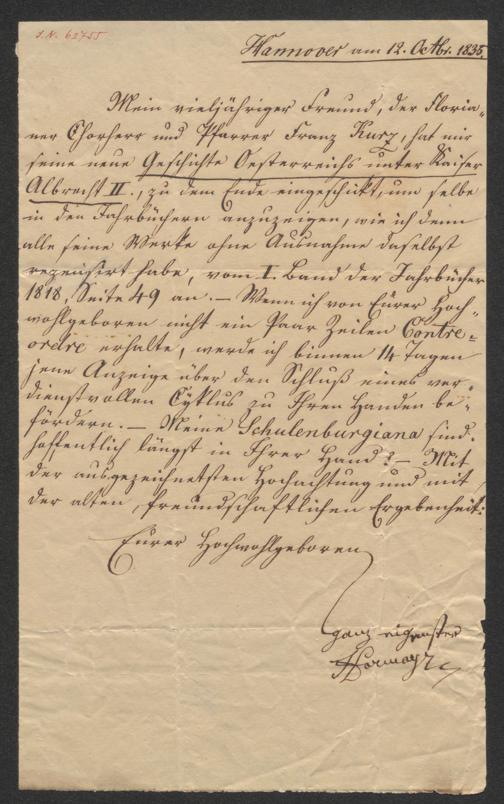 I. N. 62755
Hannover am 12. Octbr. 1835.
Mein vieljähriger Freund, der Floria-
ner Chorherr und Pfarrer Franz Kurz, hat mir
seine neue Geschichte Oesterreichs unter Kaiser
Albrecht II., zu dem Ende eingeschickt, um selbe
in den Jahrbüchern anzuzeigen, wie ich denn
alle seine Werke ohne Ausnahme daselbst
rezensirt habe, vom I. Band der Jahrbücher
1818, Seite 49 an. — Wenn ich von Eurer Hoch-
wohlgeboren nicht ein Paar Zeilen Contre-
ordre erhalte, werde ich binnen 14 Tagen
jene Anzeige über den Schluß eines ver-
dienstvollen Cyklus zu Ihren Handen be-
fördern. — Meine Schulenburgiana sind
hoffentlich längst in Ihrer Hand? — Mit
der ausgezeichnetsten Hochachtung und mit
der alten, freundschaftlichen Ergebenheit:
Eurer Hochwohlgeboren
ganz eigenster
Hormayr